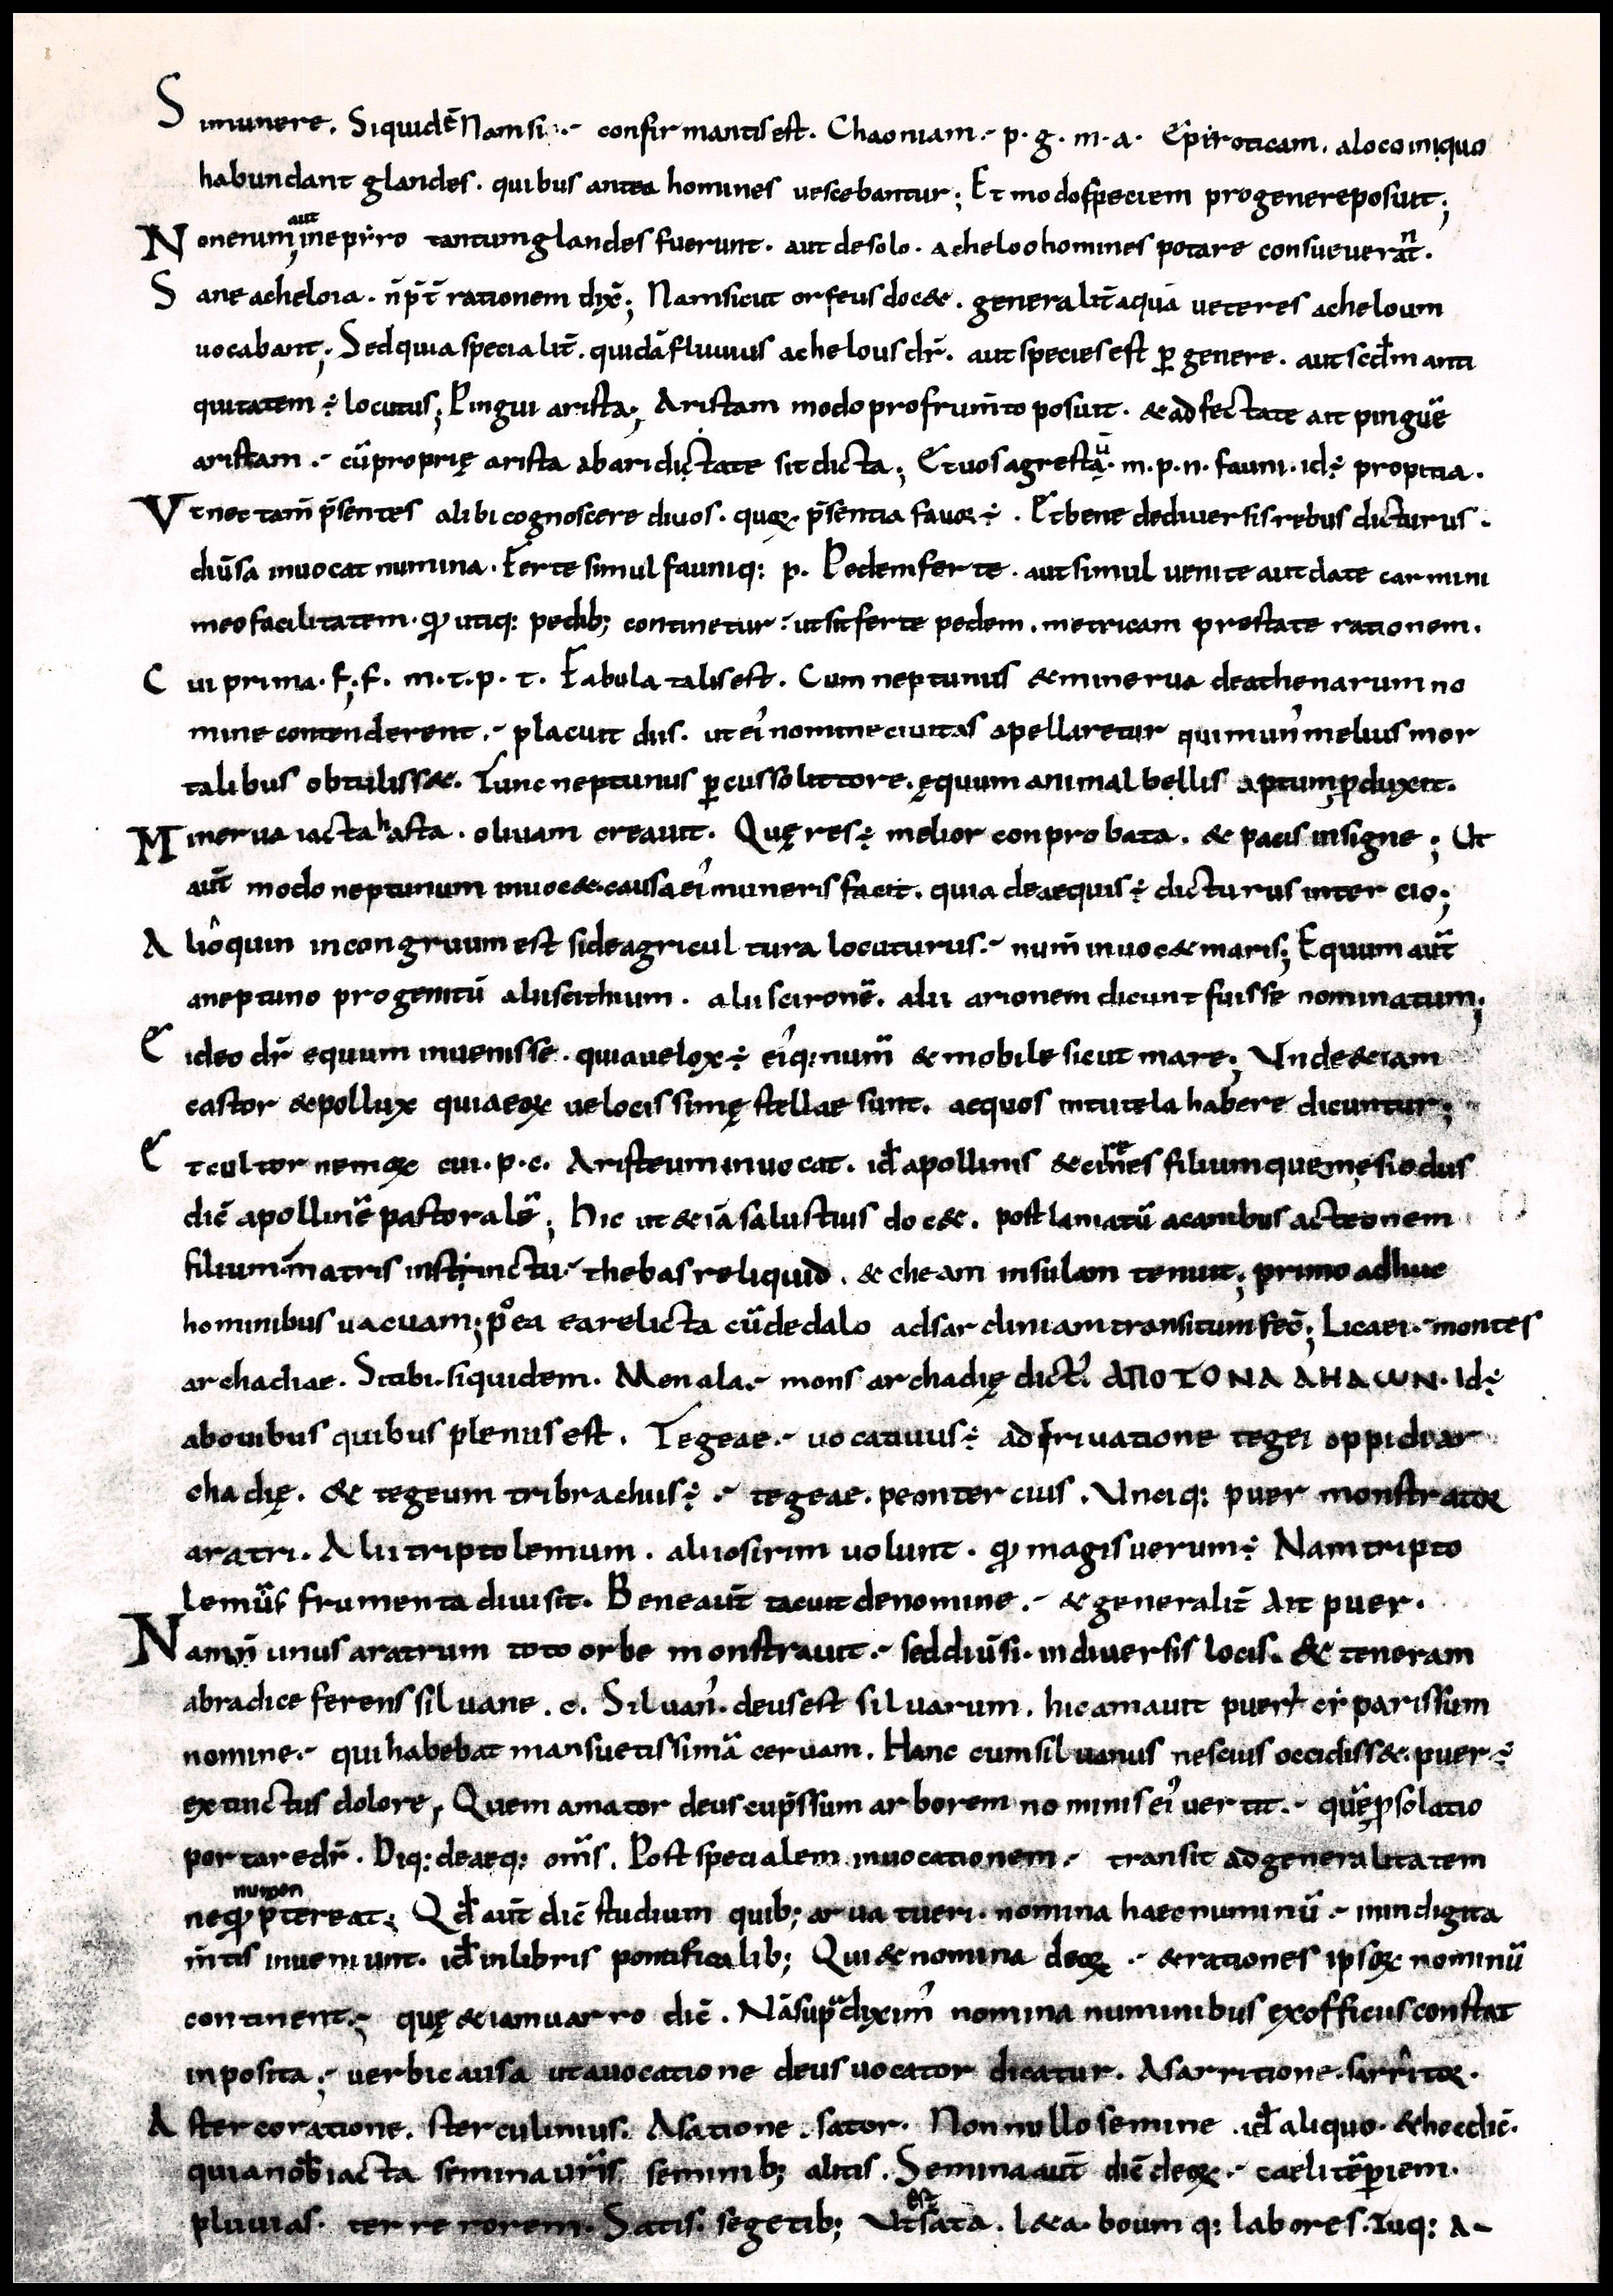 S imunere. Siquidē Nam si :·- confirmantis est. Chaoniam·- p. g. m. a. Epiroticam. a loco in quo
habundant glandes. quibus antea homines vescebantur; Et modo speciem pro genere posuit;
Non enim aut in epiro tantum glandes fuerunt. aut de solo. acheloo homines potare consueverant.
Sane acheloia. n̄ p̄t̄ rationem dix̄; Nam sicut orfeus doc&. generalit̄ aquā veteres acheloum
vocabant; Sed quia specialit̄. quidā fluvius achelous dr̄. aut species est ꝑ genere. aut scdm̄ anti
quitatem ÷ locutus; Pingui arista; Aristam modo pro frum̄to posuit. & adfectate ait pinguē
aristam·- cū proprię arista ab ariditate sit dicta; Et vos agrestū. m. p. n. fauni. id÷ propitia.
Ut nec tam̄ p̄sentes alibi cognoscere divos. quoꝝ p̄sentia favor ÷. Et bene de diversis rebus dicturus.
diūsa invocat numina. Ferte simul fauniq: p. Pedem ferte. aut simul venite aut date carmini
meo facilitatem. ꝙ utiq: pedib; continetur : ut sit ferte pedem. metricam prestate rationem.
Cui prima. f. f. m. t. p. t. Fabula talis est. Cum neptunus & minerva de athenarum no
mine contenderent·- placuit diis. ut ei' nomine civitas apellaretur qui mun' melius mor
talibus obtuliss&. Tunc neptunus ꝑcusso littore. ęquum animal bellis aptum ꝓduxit.
Minerva iacta hasta. olivam creavit. Quę res ÷ melior conprobata. & pacis insigne; Ut
aut̄ modo neptunum invoc&. causa ei' muneris facit. quia de aequis ÷ dicturus inter cio;
Alioquin incongruum est si de agricultura locuturus·- num̄ invoc& maris; Equum aut̄
a neptuno progenitū alii scithium. alii scironē. alii arionem dicunt fuisse nominatum;
E ideo dr̄ equum invenisse. quia velox ÷ ei'q: num̄ & mobile sicut mare; Unde &iam
castor & pollux quia eoꝝ velocissimę stellae sunt. aequos in tutela habere dicuntur;
Et cultor nemoꝝ cui. p. c. Aristeum invocat. id̄ apollinis & cirenes filium quem ęsiodus
dic̄ apollinē pastoralē; Hic ut &iā salustius doc&. post laniatū a canibus acteonem
filium matris instinctu·- thebas reliquid. & cheam insulam tenuit; primo adhuc
hominibus vacuam; p°ea ea relicta cū dedalo ad sardiniam transitum fec̄; Licaei·- montes
archadiae. Sicubi. siquidem. Menala·- mons archadię dict' ΑΠΟ ΤΟΝΑ ΑΗΛωΝ. Id÷
ab ovibus quibus plenus est. Tegeae·- vocativus ÷ ad rivatione tegei oppidi ar
chadię. & tegeum tribrachus ÷·- tegeae. peon tercius. Unciq: puer monstratoꝝ
aratri. Alii triptolemum. alii osirim volunt. ꝙ magis verum ÷ Nam tripto
lemūs frumenta divisit. Bene aut̄ tacuit de nomine·- & generalit̄ ait puer.
Nam n̄ unus aratrum toto orbe monstravit·- sed diūsi. in diversis locis. & teneram
ab radice ferens silvane. c. Silvan'. deus est silvarum. hic amavit puer' ciparissum
nomine·- qui habebat mansuetissimā cervam. Hanc cum silvanus nescius occidiss&. puer ÷
extinctus dolore; Quem amator deus cup̄ssum arborem nominis ei' vertit·- quē ꝓ solatio
portare dr̄. Diq: deaeq: om̄s. Post specialem invocationem·- transit ad generalitatem
ne quod numen p̄tereat; Qd̄ aut̄ dic̄ studium quib; arva tueri. nomina haec numinū·- in indigita
m̄tis inveniunt. id̄ in libris pontificalib; Qui & nomina deoꝝ·- & rationes ipsoꝝ nominū
continent·- quę &iam varro dic̄. Nā supra dixim' nomina numinibus ex officiis constat
inposita;·- verbi causa ut a vocatione deus vocator dicatur. A sarritione. sarritoꝝ.
A stercoratione. sterculinius. A satione. sator. Non nullo semine. id̄ aliquo. & hoc dic̄.
quia nob̄ iacta semina vr̄is seminib; altis. Semina aut̄ dic̄ deoꝝ·- caeli tēpiem.
pluvias. terre rorem. Satis. segetib; Ut sata est. l&a. boum q: labores. Iuq: a-